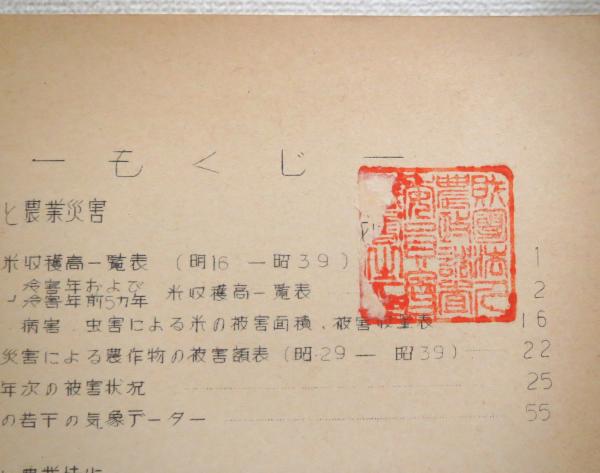 ーもくじー
と農業災害
米収穫高一覧表 (明16 ー昭39) 1
冷害年および
冷害年前5カ年 米収穫高一覧表 2
病害、虫害による米の被害面積、被害 表 16
災害による農作物の被害額表 (昭29 ー 昭39) 22
年次の被害状況 25
の若干の気象データー 55
財團法人
農政調査
委員會